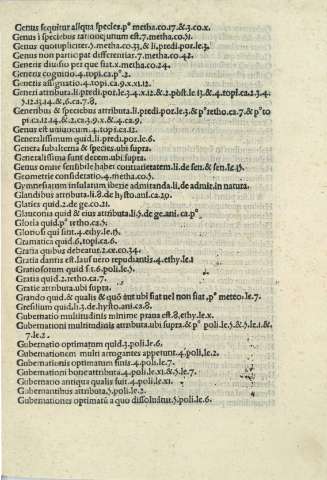 Genus sequitur aliqua species.p° metha.co.17.&.3.co.x.
Genus i speciebus rationequutum est.7.metha.co.51.
Genus quotupliciter.5.metha.co.33.& li.predi.por.le.3.
Genus non participat differentias.7.metha.co.42.
Generis diuisio per que fiat.x.metha.co.24.
Generis cognitio.4.topi.ca.p°.2.
Generis assignatio.4.topi.ca.9.x.xi.12.
Generi attributa.li.predi.por.le.3.4.x.12.&.2.post.le.13.&.4.topi.ca.1.3.4.
5.12.13.14.&.6.ca.7.8.
Generibus & speciebus attributa.li.predi.por.le.3.& p° retho.ca.7.& p° to
pi.ca.12.14.&.2.ca.3.9.x.&.4.ca.9.
Genus est uniuocum.4.topi.ca.12.
Generalissimum quid.li.predi.por.le.6.
Genera subalterna & species.ubi supra.
Generalissima sunt decem.ubi supra.
Genus omne sensibile habet contrarietatem.li.de sen.& sen.le.15.
Geometrie consideratio.4.metha.co.5.
Gymnesiarum insularum iberie admiranda.li.de admir.in natura.
Glandibus attributa.li.8.de hysto.ani.ca.29.
Glacies quid.2.de ge.co.21.
Glauconia quid & eius attributa.li.5.de ge.ani.ca.p°.
Gloria quid.p° retho.ca.5.
Gloriosi qui sint.4.ethy.le.15.
Gramatica quid.6.topi.ca.6.
Gratia quibus debeatur.2.ce.co.34.
Gratia dantis est.laus uero repudiantis.4.ethy.le.1
Gratiosorum quid sit.6.poli.le.5.
Gratia quid.2.retho.ca.7.
Gratie attributa.ubi supra.
Grando quid.& qualis & quō fiat ubi fiat uel non fiat.p° meteo.le.7.
Gressilium quid.li.3.de hysto.ani.ca.8.
Gubernatio multitudinis minime praua est.8.ethy.le.x.
Gubernationi multitudinis attributa.ubi supra.& p° poli.le.5.&.5.le.1.&
7.le.2.
Gubernatio optimatum quid.3.poli.le.6.
Gubernationem multi arrogantes appetunt.4.poli.le.2.
Gubernationis optimatum finis.4.poli.le.7.
Gubernationi bone attributa.4.poli.le.xi.&.5.le.7.
Gubernatio antiqua qualis fuit.4.poli.le.xi.
Gubernantibus attributa.5.poli.le.2.
Gubernationes optimatū a quo dissoluātur.5.poli.le.6.